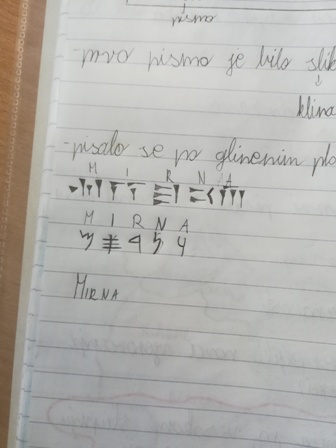 pismo
-prvo pismo je bilo slik
klina
-pisalo se po glinenim plo
M I R N A
M I R N A
MIRNA